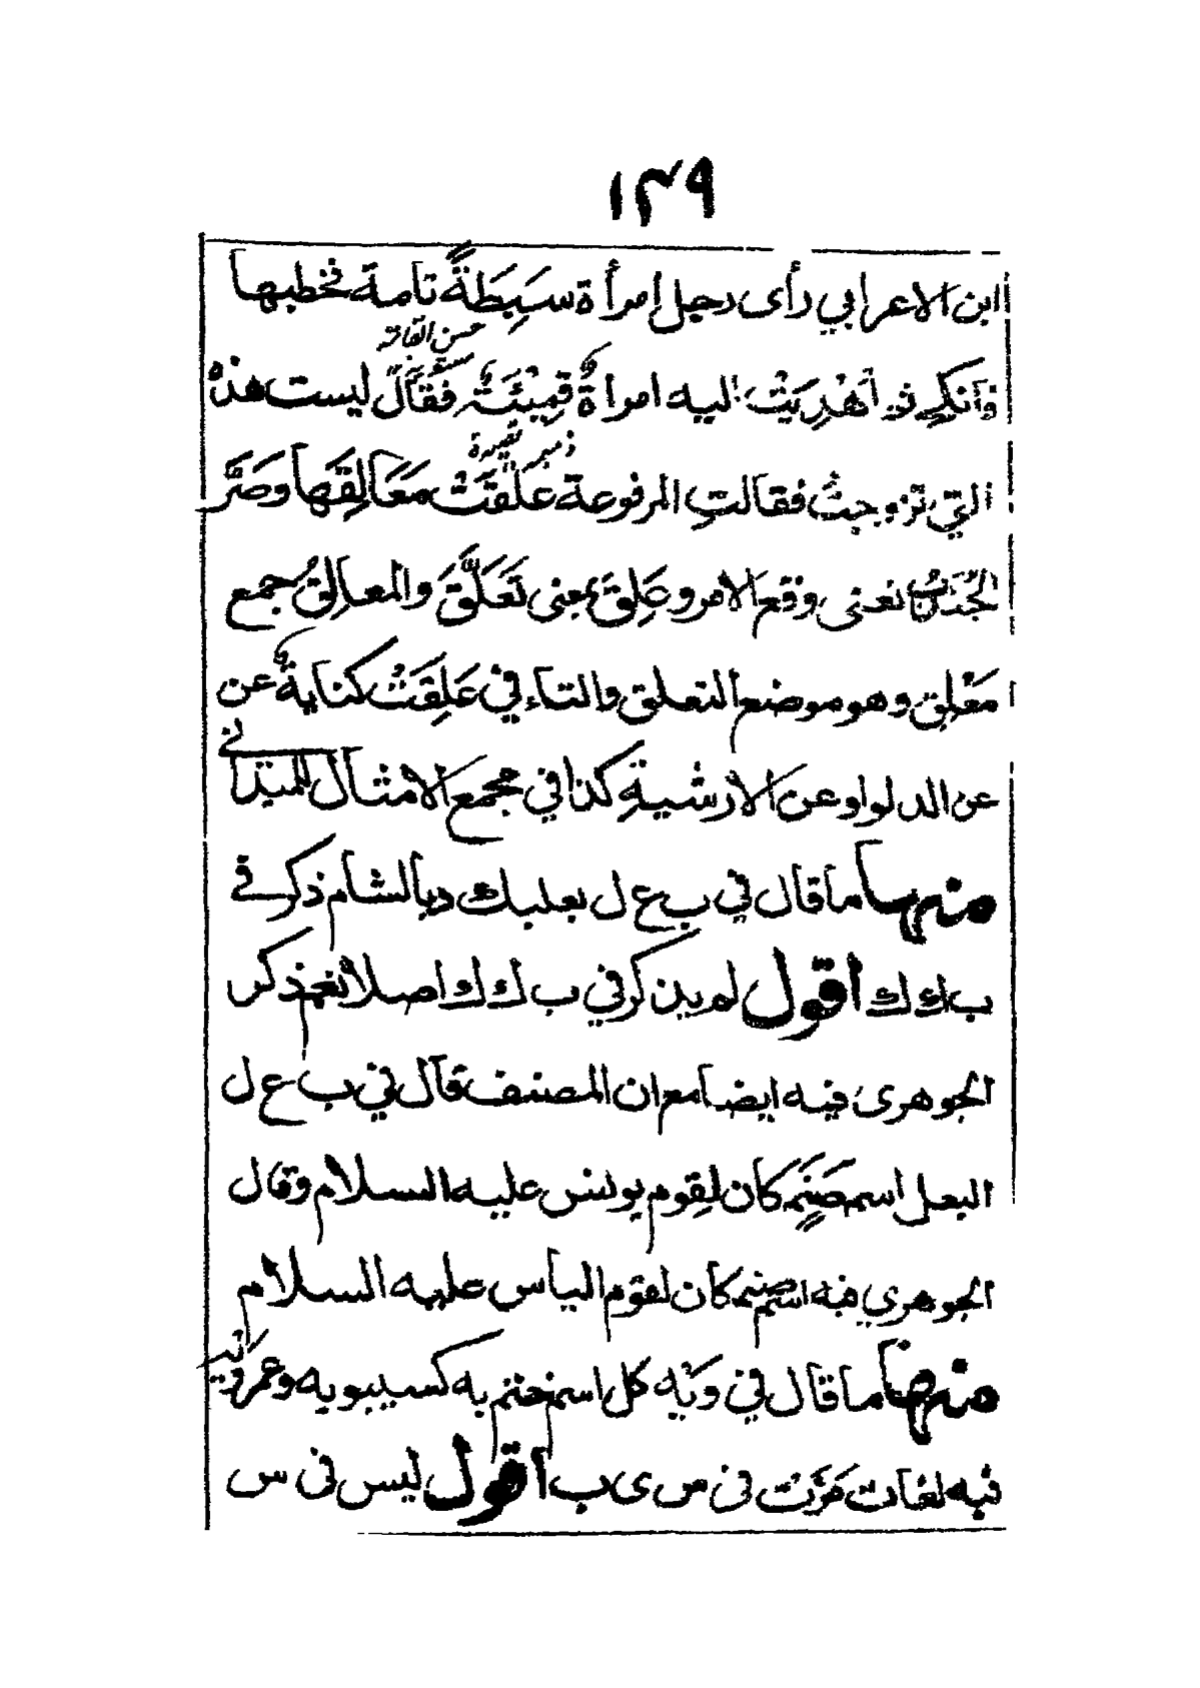 ١٣٩
ابن الاعرابي رأى رجل امرأة سَبِطَةً تامة فخطبها
حسن القامة
فأنكح فأُهْدِيَتْ اليه امرأةٌ قَمِيْئَةٌ فقال ليست هذه
قصيرة
التي تزوجتُ فقالتِ المرفوعة عَلِقَتْ مَعَالِقَهَا وصَرَّ
الجُنْدَبُ تعنى وقع الامر وعَلِقَ بمعنى تَعَلَّقَ والمعالِقُ جمع
مَعْلِق وهو موضع التعلق والتاء في عَلِقَتْ كنايةٌ عن
عن الدلو او عن الأرشيةِ كذا في مجمع الامثال للميداني
منها ما قال في ب ع ل بعلبك د بالشام ذكر في
ب ك ك اقول لم يذكر في ب ك ك اصلا نعم ذكر
الجوهرى فيه ايضا مع ان المصنف قال في ب ع ل
البعل اسم صَنَمٍ كان لِقوم يونس عليه السلام وقال
الجوهري فيه اسم صنم كان لقوم الياس عليه السلام
منها ما قال في وَيْه كل اسم ختم به كسيبويه وعمرويه
فيه لغات مَرَّت في س ى ب اقول ليس في س